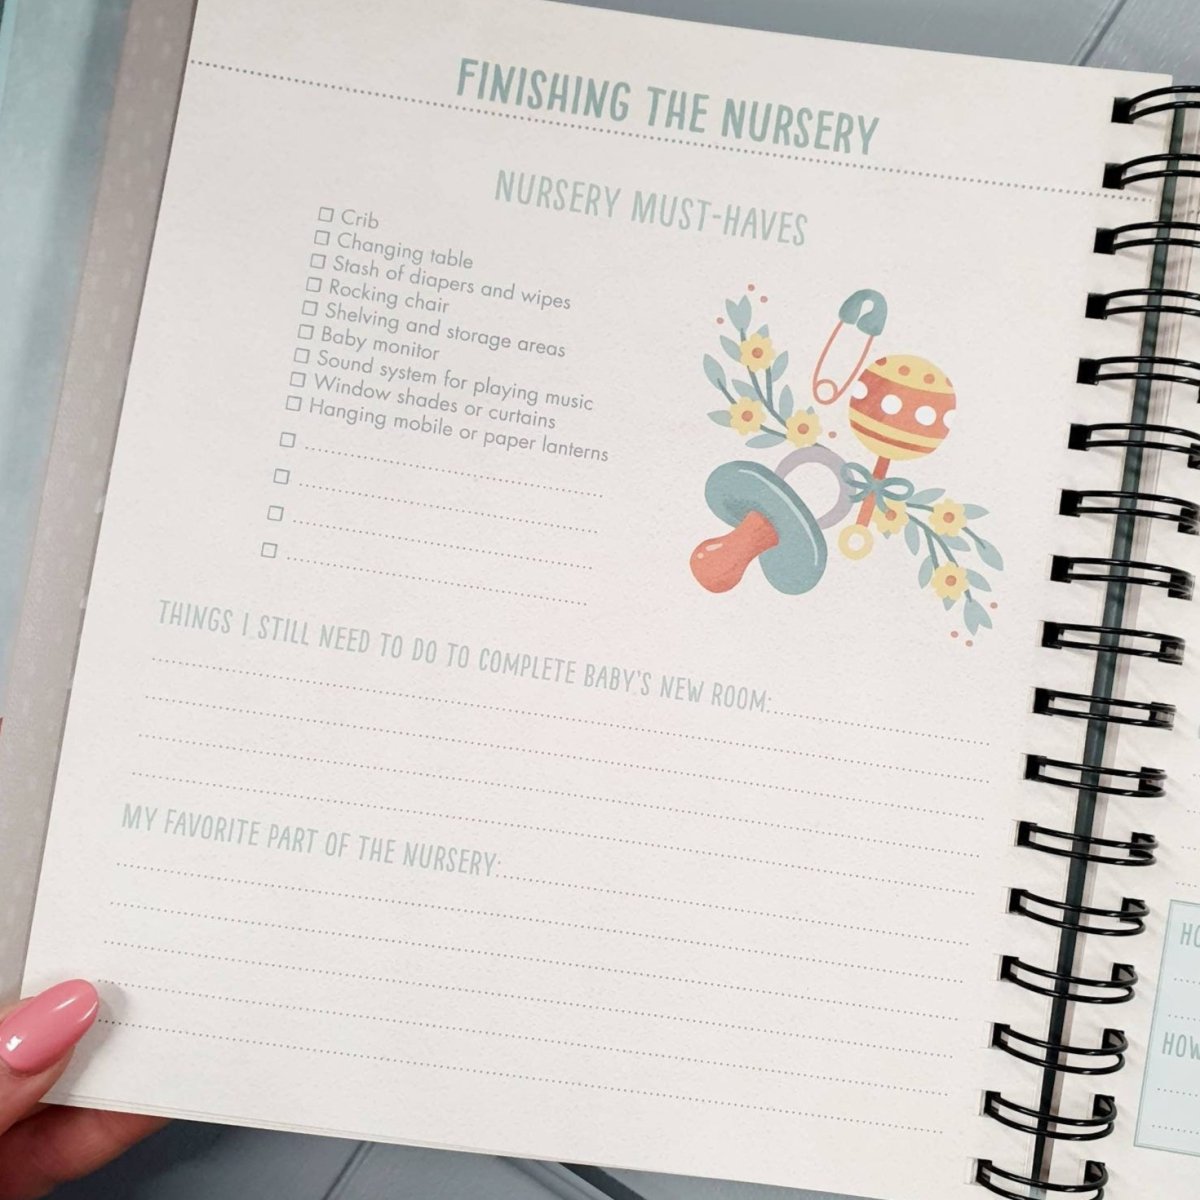 FINISHING THE NURSERY
NURSERY MUST-HAVES
Crib
Changing table
Stash of diapers and wipes
Rocking chair
Shelving and storage areas
Baby monitor
Sound system for playing music
Window shades or curtains
Hanging mobile or paper lanterns
THINGS I STILL NEED TO DO TO COMPLETE BABY'S NEW ROOM:
MY FAVORITE PART OF THE NURSERY:
HOW